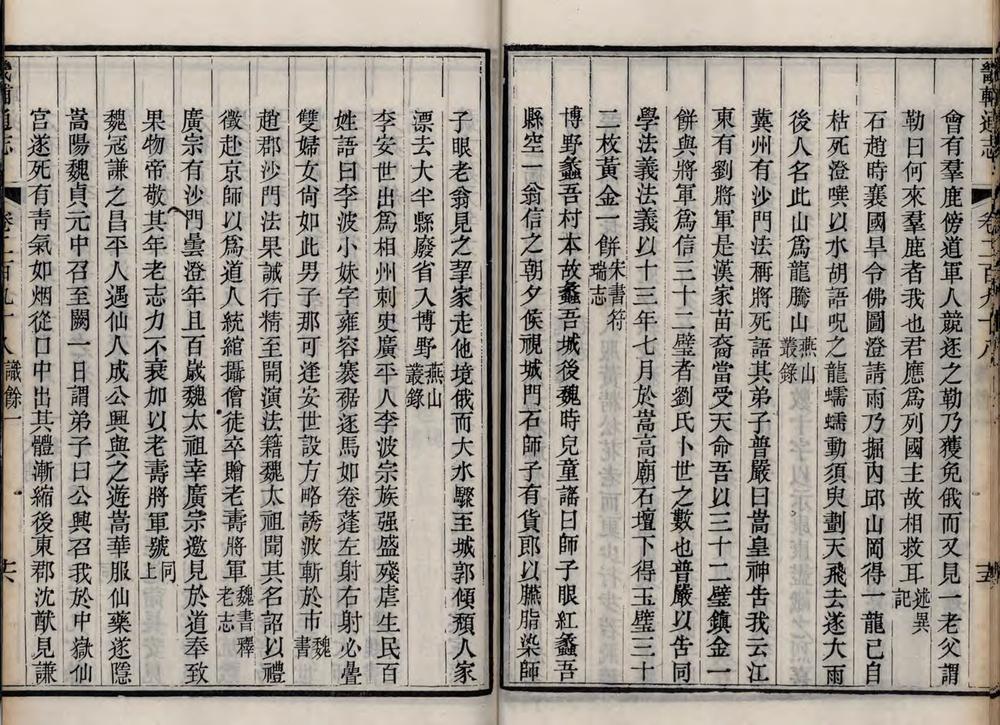 會有羣鹿傍道軍人競逐之勒乃獲免俄而又見一老父謂
勒曰向來羣鹿者我也君應爲列國主故相救耳述異記
石趙時襄國旱令佛圖澄請雨乃掘內邱山岡得一龍已自
枯死澄噀以水胡語呪之龍蠕蠕動須臾劃天飛去遂大雨
後人名此山爲龍騰山燕山叢錄
冀州有沙門法稱將死語其弟子普嚴曰嵩皇神告我云江
東有劉將軍是漢家苗裔當受天命吾以三十二璧鎮金一
餅與將軍爲信三十二璧者劉氏卜世之數也普嚴以告同
學法義法義以十三年七月於嵩高廟石壇下得玉璧三十
二枚黃金一餅宋書符瑞志
博野蠡吾村本故蠡吾城後魏時兒童謠曰師子眼紅蠡吾
縣空一翁信之朝夕候視城門石師子有貨郎以臙脂染師
子眼老翁見之挈家走他境俄而大水驟至城郭傾頹人家
漂去大半縣廢省入博野燕山叢錄
李安世出爲相州刺史廣平人李波宗族强盛殘虐生民百
姓語曰李波小妹字雍容褰裾逐馬如卷蓬左射右射必疊
雙婦女尙如此男子那可逢安世設方略誘波斬於市魏書
趙郡沙門法果誠行精至開演法籍魏太祖聞其名詔以禮
徵赴京師以爲道人統綰攝僧徒卒贈老壽將軍魏書釋老志
廣宗有沙門曇澄年且百歲魏太祖幸廣宗邀見於道奉致
果物帝敬其年老志力不衰加以老壽將軍號同上
魏寇謙之昌平人遇仙人成公興與之遊嵩華服仙藥遂隱
嵩陽魏貞元中召至闕一日謂弟子曰公興召我於中嶽仙
宮遂死有靑氣如烟從口中出其體漸縮後東郡沈猷見謙
畿輔通志
卷二百九十八
識餘一